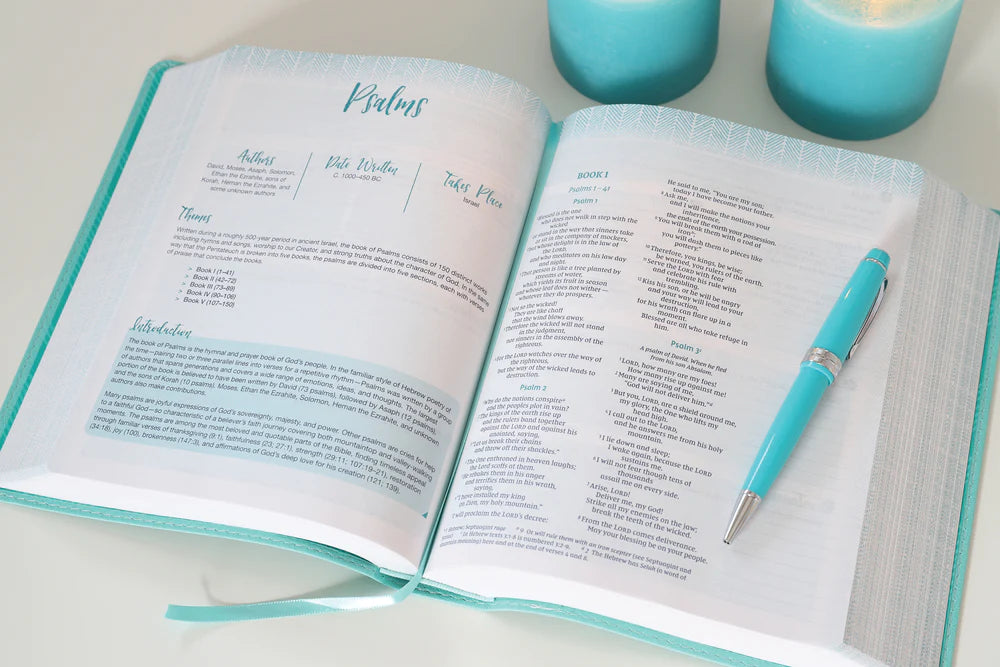 Psalms
Authors
David, Moses, Asaph, Solomon,
Ethan the Ezrahite, sons of
Korah, Heman the Ezrahite, and
some unknown authors
Date Written
C. 1000–450 BC
Takes Place
Israel
Themes
Written during a roughly 500-year period in ancient Israel, the book of Psalms consists of 150 distinct works
including hymns and songs, worship to our Creator, and strong truths about the character of God. In the same
way that the Pentateuch is broken into five books, the psalms are divided into five sections, each with verses
of praise that conclude the books.
> Book I (1–41)
> Book II (42–72)
> Book III (73–89)
> Book IV (90–106)
> Book V (107–150)
Introduction
The book of Psalms is the hymnal and prayer book of God's people. In the familiar style of Hebrew poetry of
the time—pairing two or three parallel lines into verses for a repetitive rhythm—Psalms was written by a group
of authors that spans generations and covers a wide range of emotions, ideas, and thoughts. The largest
portion of the book is believed to have been written by David (73 psalms), followed by Asaph (12 psalms),
and the sons of Korah (10 psalms). Moses, Ethan the Ezrahite, Solomon, Heman the Ezrahite, and unknown
authors also make contributions.
Many psalms are joyful expressions of God's sovereignty, majesty, and power. Other psalms are cries for help
to a faithful God—so characteristic of a believer's faith journey covering both mountaintop and valley-walking
moments. The psalms are among the most beloved and quotable parts of the Bible, finding timeless appeal
through familiar verses of thanksgiving (9:1), faithfulness (23; 27:1), strength (29:11; 107:19–21), restoration
(34:18), joy (100), brokenness (147:3), and affirmations of God's deep love for his creation (121; 139).
BOOK I
Psalms 1–41
Psalm 1
Blessed is the one
who does not walk in step with the
wicked
or stand in the way that sinners take
or sit in the company of mockers,
but whose delight is in the law of
the LORD,
and who meditates on his law day
and night.
That person is like a tree planted by
streams of water,
which yields its fruit in season
and whose leaf does not wither—
whatever they do prospers.
Not so the wicked!
They are like chaff
that the wind blows away.
Therefore the wicked will not stand
in the judgment,
nor sinners in the assembly of the
righteous.
For the LORD watches over the way of
the righteous,
but the way of the wicked leads to
destruction.
Psalm 2
Why do the nations conspire
and the peoples plot in vain?
The kings of the earth rise up
and the rulers band together
against the LORD and against his
anointed, saying,
"Let us break their chains
and throw off their shackles."
The One enthroned in heaven laughs;
the Lord scoffs at them.
He rebukes them in his anger
and terrifies them in his wrath,
saying,
"I have installed my king
on Zion, my holy mountain."
I will proclaim the LORD's decree:
He said to me, "You are my son;
today I have become your father.
8 Ask me,
and I will make the nations your
inheritance,
the ends of the earth your possession.
9 You will break them with a rod of
iron;
you will dash them to pieces like
pottery."
10 Therefore, you kings, be wise;
be warned, you rulers of the earth.
11 Serve the LORD with fear
and celebrate his rule with
trembling.
12 Kiss his son, or he will be angry
and your way will lead to your
destruction,
for his wrath can flare up in a
moment.
Blessed are all who take refuge in
him.
Psalm 3
A psalm of David. When he fled
from his son Absalom.
1 LORD, how many are my foes!
How many rise up against me!
2 Many are saying of me,
"God will not deliver him."
3 But you, LORD, are a shield around me,
my glory, the One who lifts my
head high.
4 I call out to the LORD,
and he answers me from his holy
mountain.
5 I lie down and sleep;
I wake again, because the LORD
sustains me.
6 I will not fear though tens of
thousands
assail me on every side.
7 Arise, LORD!
Deliver me, my God!
Strike all my enemies on the jaw;
break the teeth of the wicked.
8 From the LORD comes deliverance.
May your blessing be on your people.
Hebrew; Septuagint rage
9 Or will rule them with an iron scepter (see Septuagint and
In Hebrew texts 3:1-8 is numbered 3:2-9.
2 The Hebrew has Selah (a word of
uncertain meaning) here and at the end of verses 4 and 8.